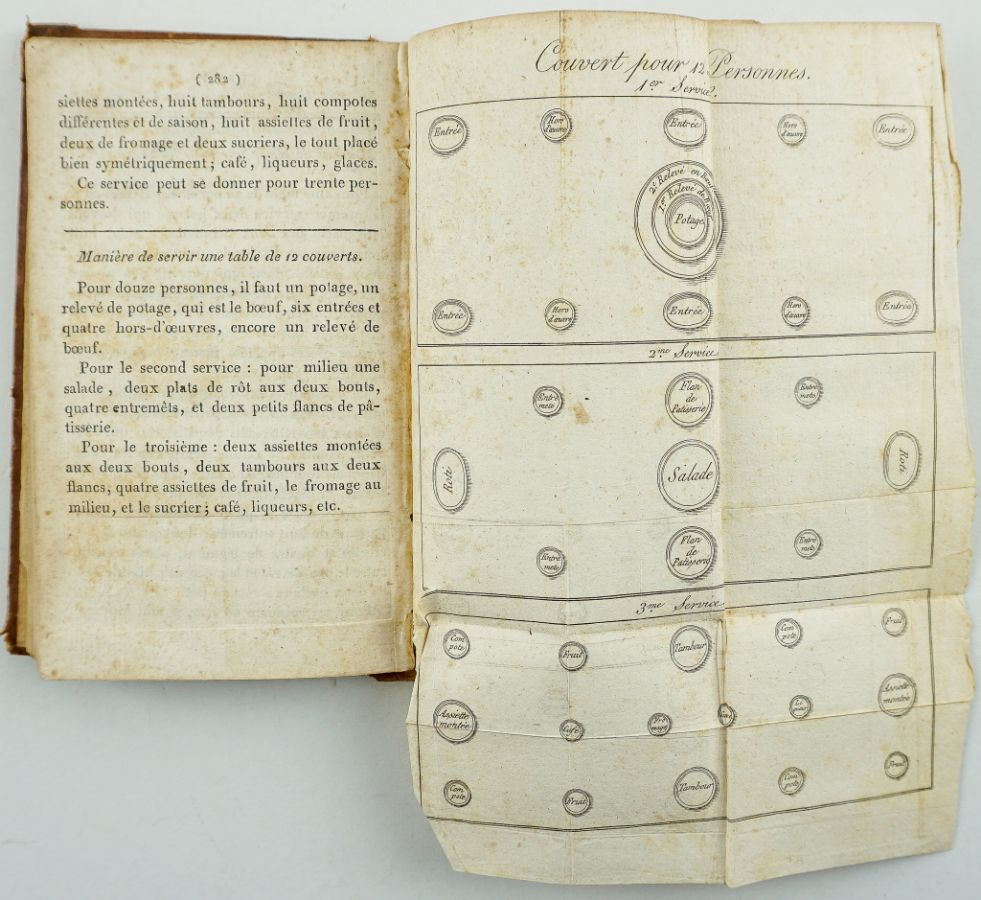 ( 282 )
siettes montées, huit tambours, huit compotes
différentes et de saison, huit assiettes de fruit,
deux de fromage et deux sucriers, le tout placé
bien symétriquement ; café, liqueurs, glaces.
Ce service peut se donner pour trente per-
sonnes.
Manière de servir une table de 12 couverts.
Pour douze personnes, il faut un potage, un
relevé de potage, qui est le bœuf, six entrées et
quatre hors-d'œuvres, encore un relevé de
bœuf.
Pour le second service : pour milieu une
salade, deux plats de rôt aux deux bouts,
quatre entremêts, et deux petits flancs de pâ-
tisserie.
Pour le troisième : deux assiettes montées
aux deux bouts, deux tambours aux deux
flancs, quatre assiettes de fruit, le fromage au
milieu, et le sucrier ; café, liqueurs, etc.
Couvert pour 12 Personnes.
1er Service.
Entrée
Hors
d'œuvre
Entrée
Hors
d'œuvre
Entrée
2e Relevé en Bœuf
1er Relevé de Bœuf
Potage
Entrée
Hors
d'œuvre
Entrée
Hors
d'œuvre
Entrée
2me Service
Entre
mets
Flan
de
Patisserie
Entre
mets
Roti
Salade
Roti
Entre
mets
Flan
de
Patisserie
Entre
mets
3me Service
Com
pote
Fruit
Tambour
Com
pote
Fruit
Assiette
montée
Café
Fro
mage
Li
queur
Assiette
montée
Com
pote
Fruit
Tambour
Com
pote
Fruit